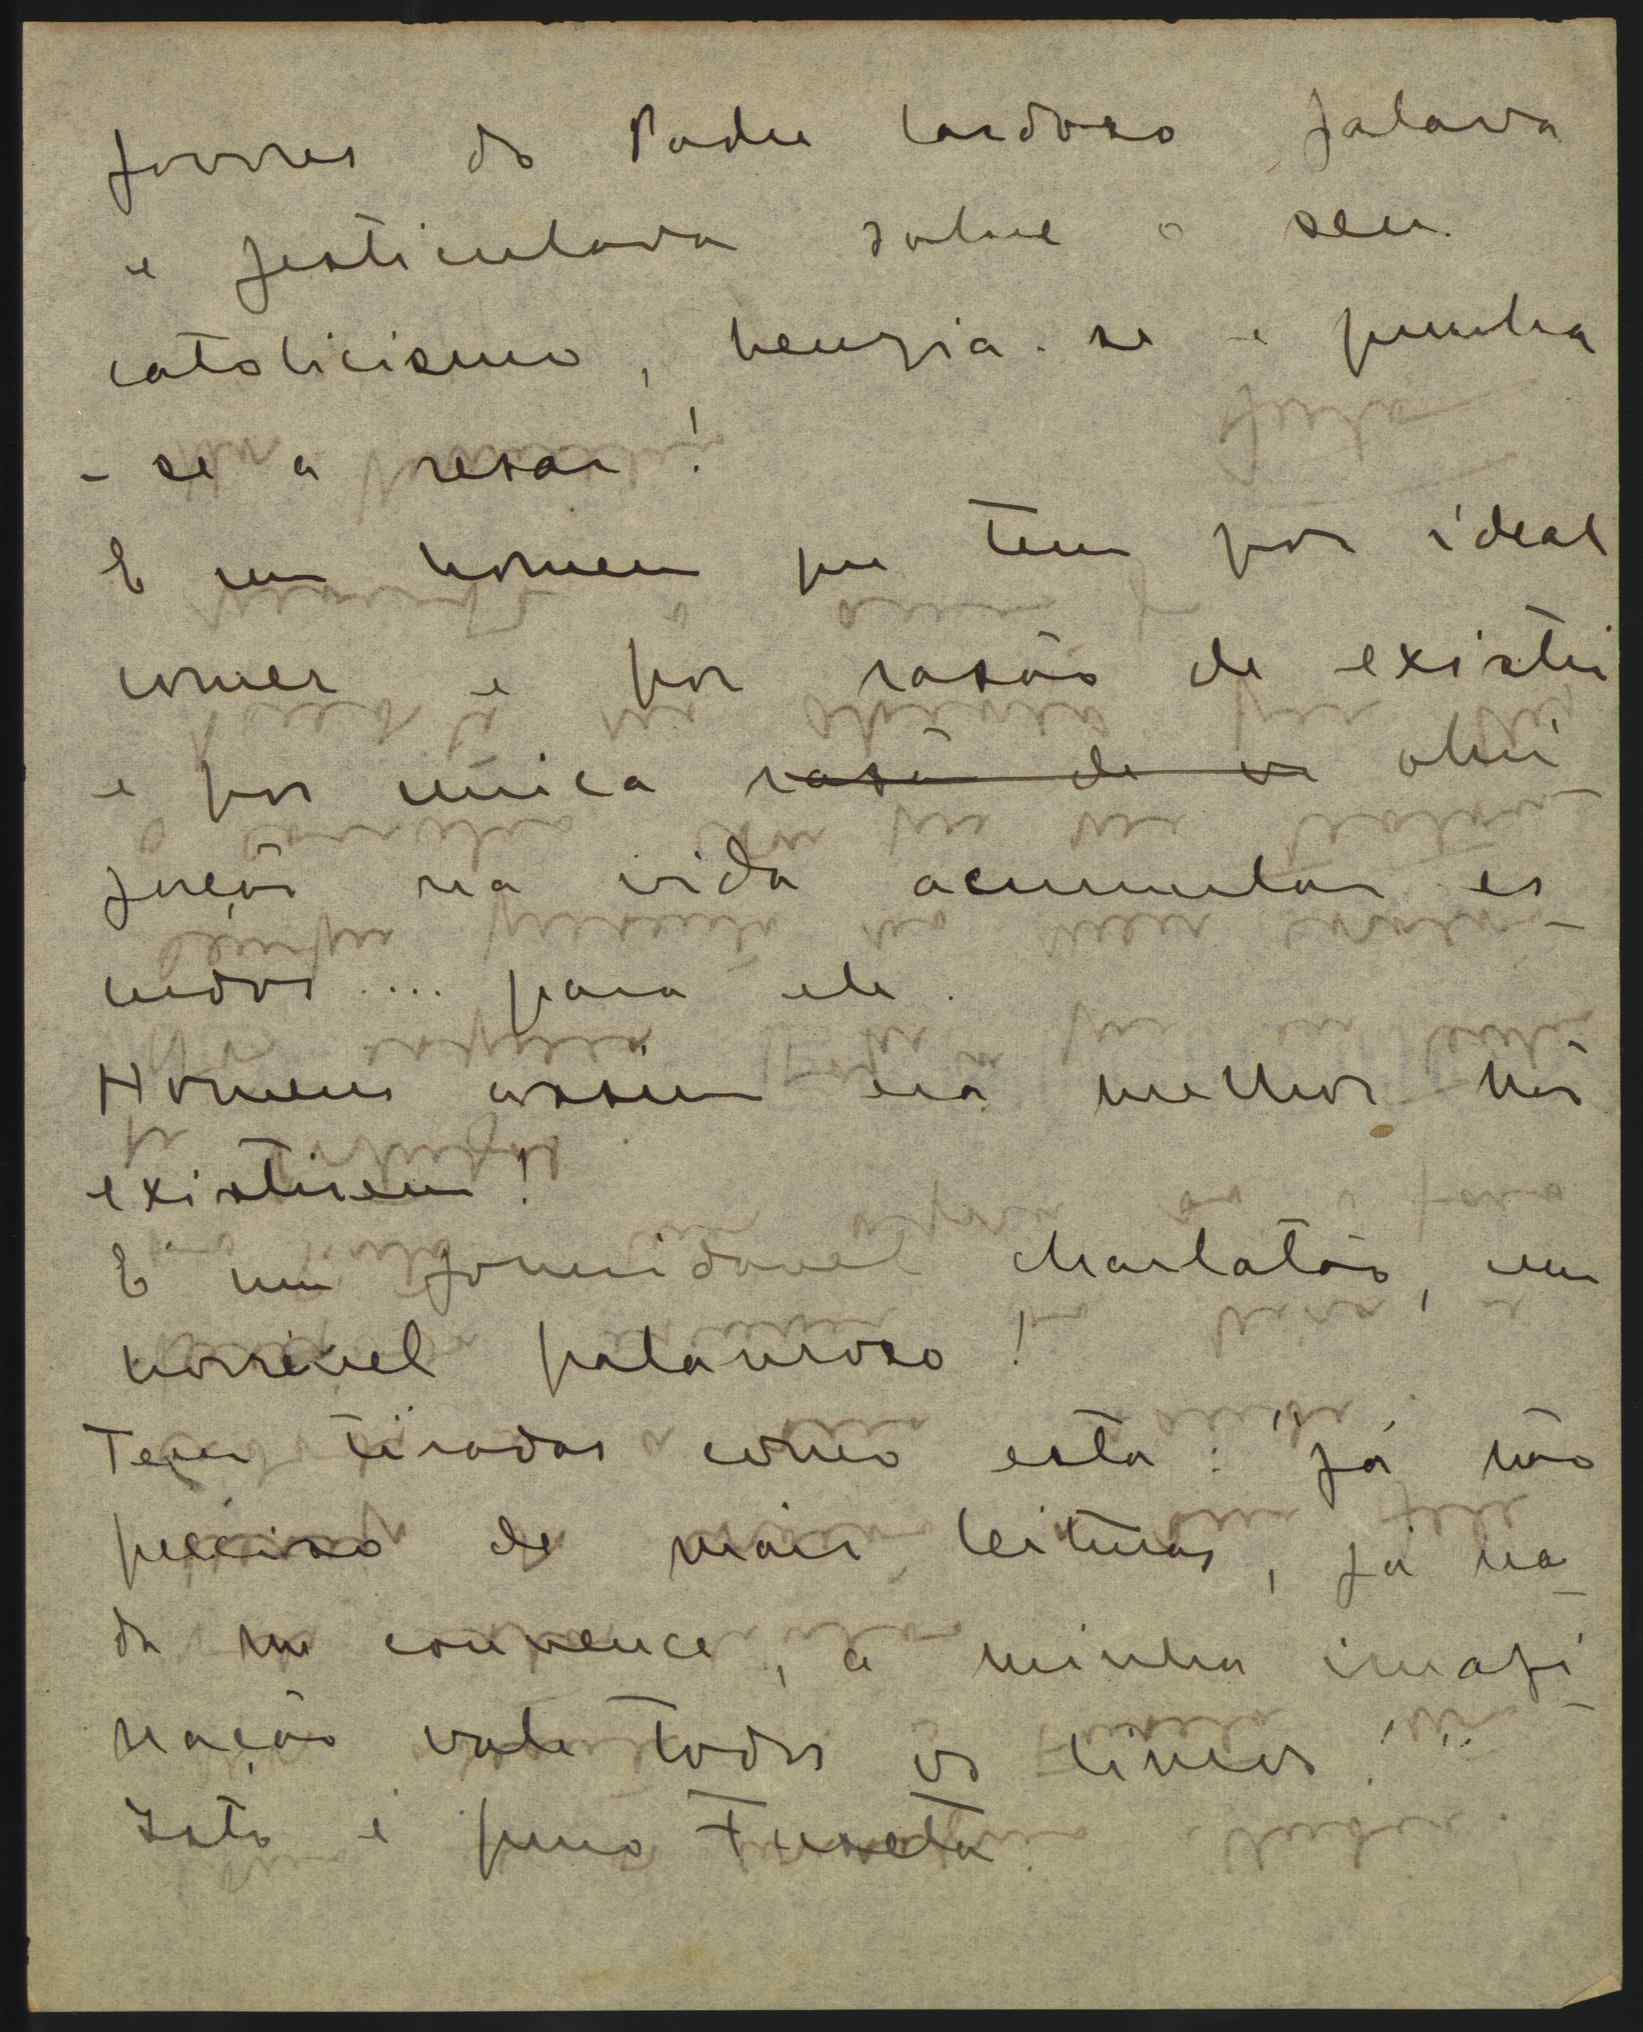 fornes do Padre Cardoso falava
e gesticulava sobre o seu
catolicismo, benzia-se e punha
-se a resar!
É um homem que tem por ideal
comer e por rasão de existir
e por unica rasão de vi obri
gação na vida acumular es
cudos.... para ele.
Homens assim era melhor não
existirem!
É um formidavel charlatão, um
horrivel palavroso!
Tem tiradas como esta: "já não
preciso de mais leituras, já na-
da me convence, a minha imagi-
nação vale todos os livros!"
Isto é puro Fuseta.